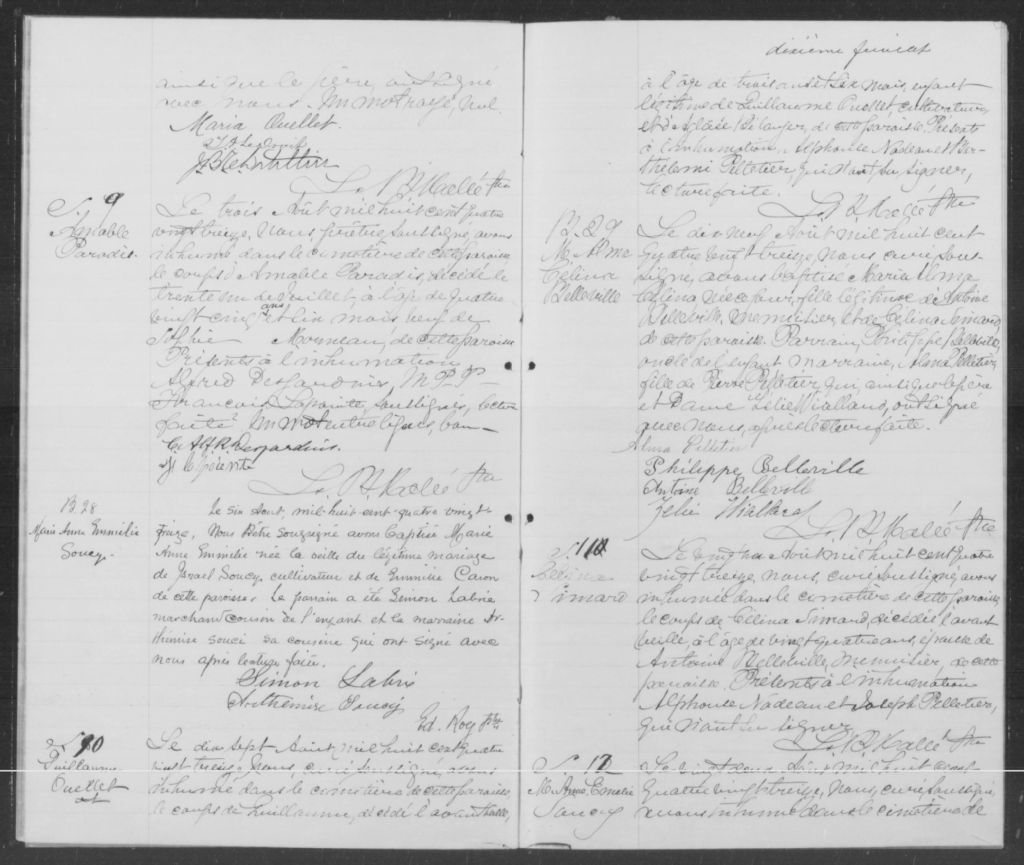 ainsi que le père, ont signé
avec nous. Un mot rayé, nul.
Maria Ouellet.
L. N. Vallée Ptre
S. 9
Amable
Paradis.
Le trois Août mil huit cent quatre
vingt treize, Nous prêtre soussigné, avons
inhumé dans le cimetière de cette paroisse
le corps d'Amable Paradis, décédé le
trente un de Juillet, à l'âge de quatre
vingt cinq ans et six mois, veuf de
Sophie Morneau, de cette paroisse
Présents à l'inhumation
Alfred Desjardins, M.P.P.
François Lapointe, soussignés, lecture
faite. Un mot entre lignes, bon
C. Alf. R. Desjardins.
L. N. Vallée Ptre
B. 28
Marie Anne Emmilie
Soucy.
Le six août, mil huit cent quatre vingt
treize, Nous Prêtre Soussigné avons Baptisé Marie
Anne Emmilie née la veille du légitime mariage
de Israel Soucy, cultivateur et de Emmilie Caron
de cette paroisse. Le parrain a été Simon Labrie
marchand cousin de l'enfant et la marraine Ar-
thémise Souci sa cousine qui ont signé avec
nous après lecture faite.
Simon Labrie
Arthémise Soucy
Ed. Roy Ptre
S. 10
Guillaume
Ouellet
Le dix sept Août mil huit cent quatre
vingt treize, Nous, curé soussigné, avons
inhumé dans le cimetière de cette paroisse,
le corps de Guillaume, décédé l'avant veille,
dixième feuillet
à l'âge de trois ans et six mois, enfant
légitime de Guillaume Ouellet, cultivateur,
et d'Aglaée Bélanger, de cette paroisse. Présents
à l'inhumation, Alphonse Nadeau et Bar-
thelemi Pelletier, qui n'ont su signer,
lecture faite.
L. N. Vallée Ptre
B. 29
M. Alma
Célina
Belleville
Le dix neuf Août mil huit cent
quatre vingt treize, nous, curé sous-
signé, avons baptisé Maria Alma
Célina, née ce jour, fille légitime de Antoine
Belleville, menuisier, et de Célina Simard,
de cette paroisse. Parrain, Philippe Belleville,
oncle de l'enfant, marraine, Alma Pelletier,
fille de Pierre Pelletier, qui, ainsi que le père
et Dame Zélie Walland, ont signé
avec nous, après lecture faite.
Alma Pelletier
Philippe Belleville
Antoine Belleville
Zélie
L. N. Vallée Ptre
S. 11
Célina
Simard
Août mil huit cent quatre
vingt treize, nous, curé soussigné, avons
inhumé dans le cimetière de cette paroisse,
le corps de Célina Simard, décédée l'avant
veille, à l'âge de vingt quatre ans, épouse de
Antoine Belleville, menuisier, de cette
paroisse. Présents à l'inhumation
Alphonse Nadeau et Joseph Pelletier,
qui n'ont su signer
L. N. Vallée Ptre
S. 12
M. Anne Emelie
Soucy
Le vingt deux Août mil huit cent
quatre vingt treize, Nous, curé soussigné,
avons inhumé dans le cimetière de